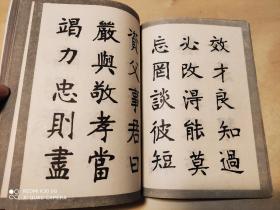 效才良知過
必改得能莫
忘罔談彼短
資父事君曰
嚴與敬孝當
竭力忠則盡
AI QUAD CAMERA